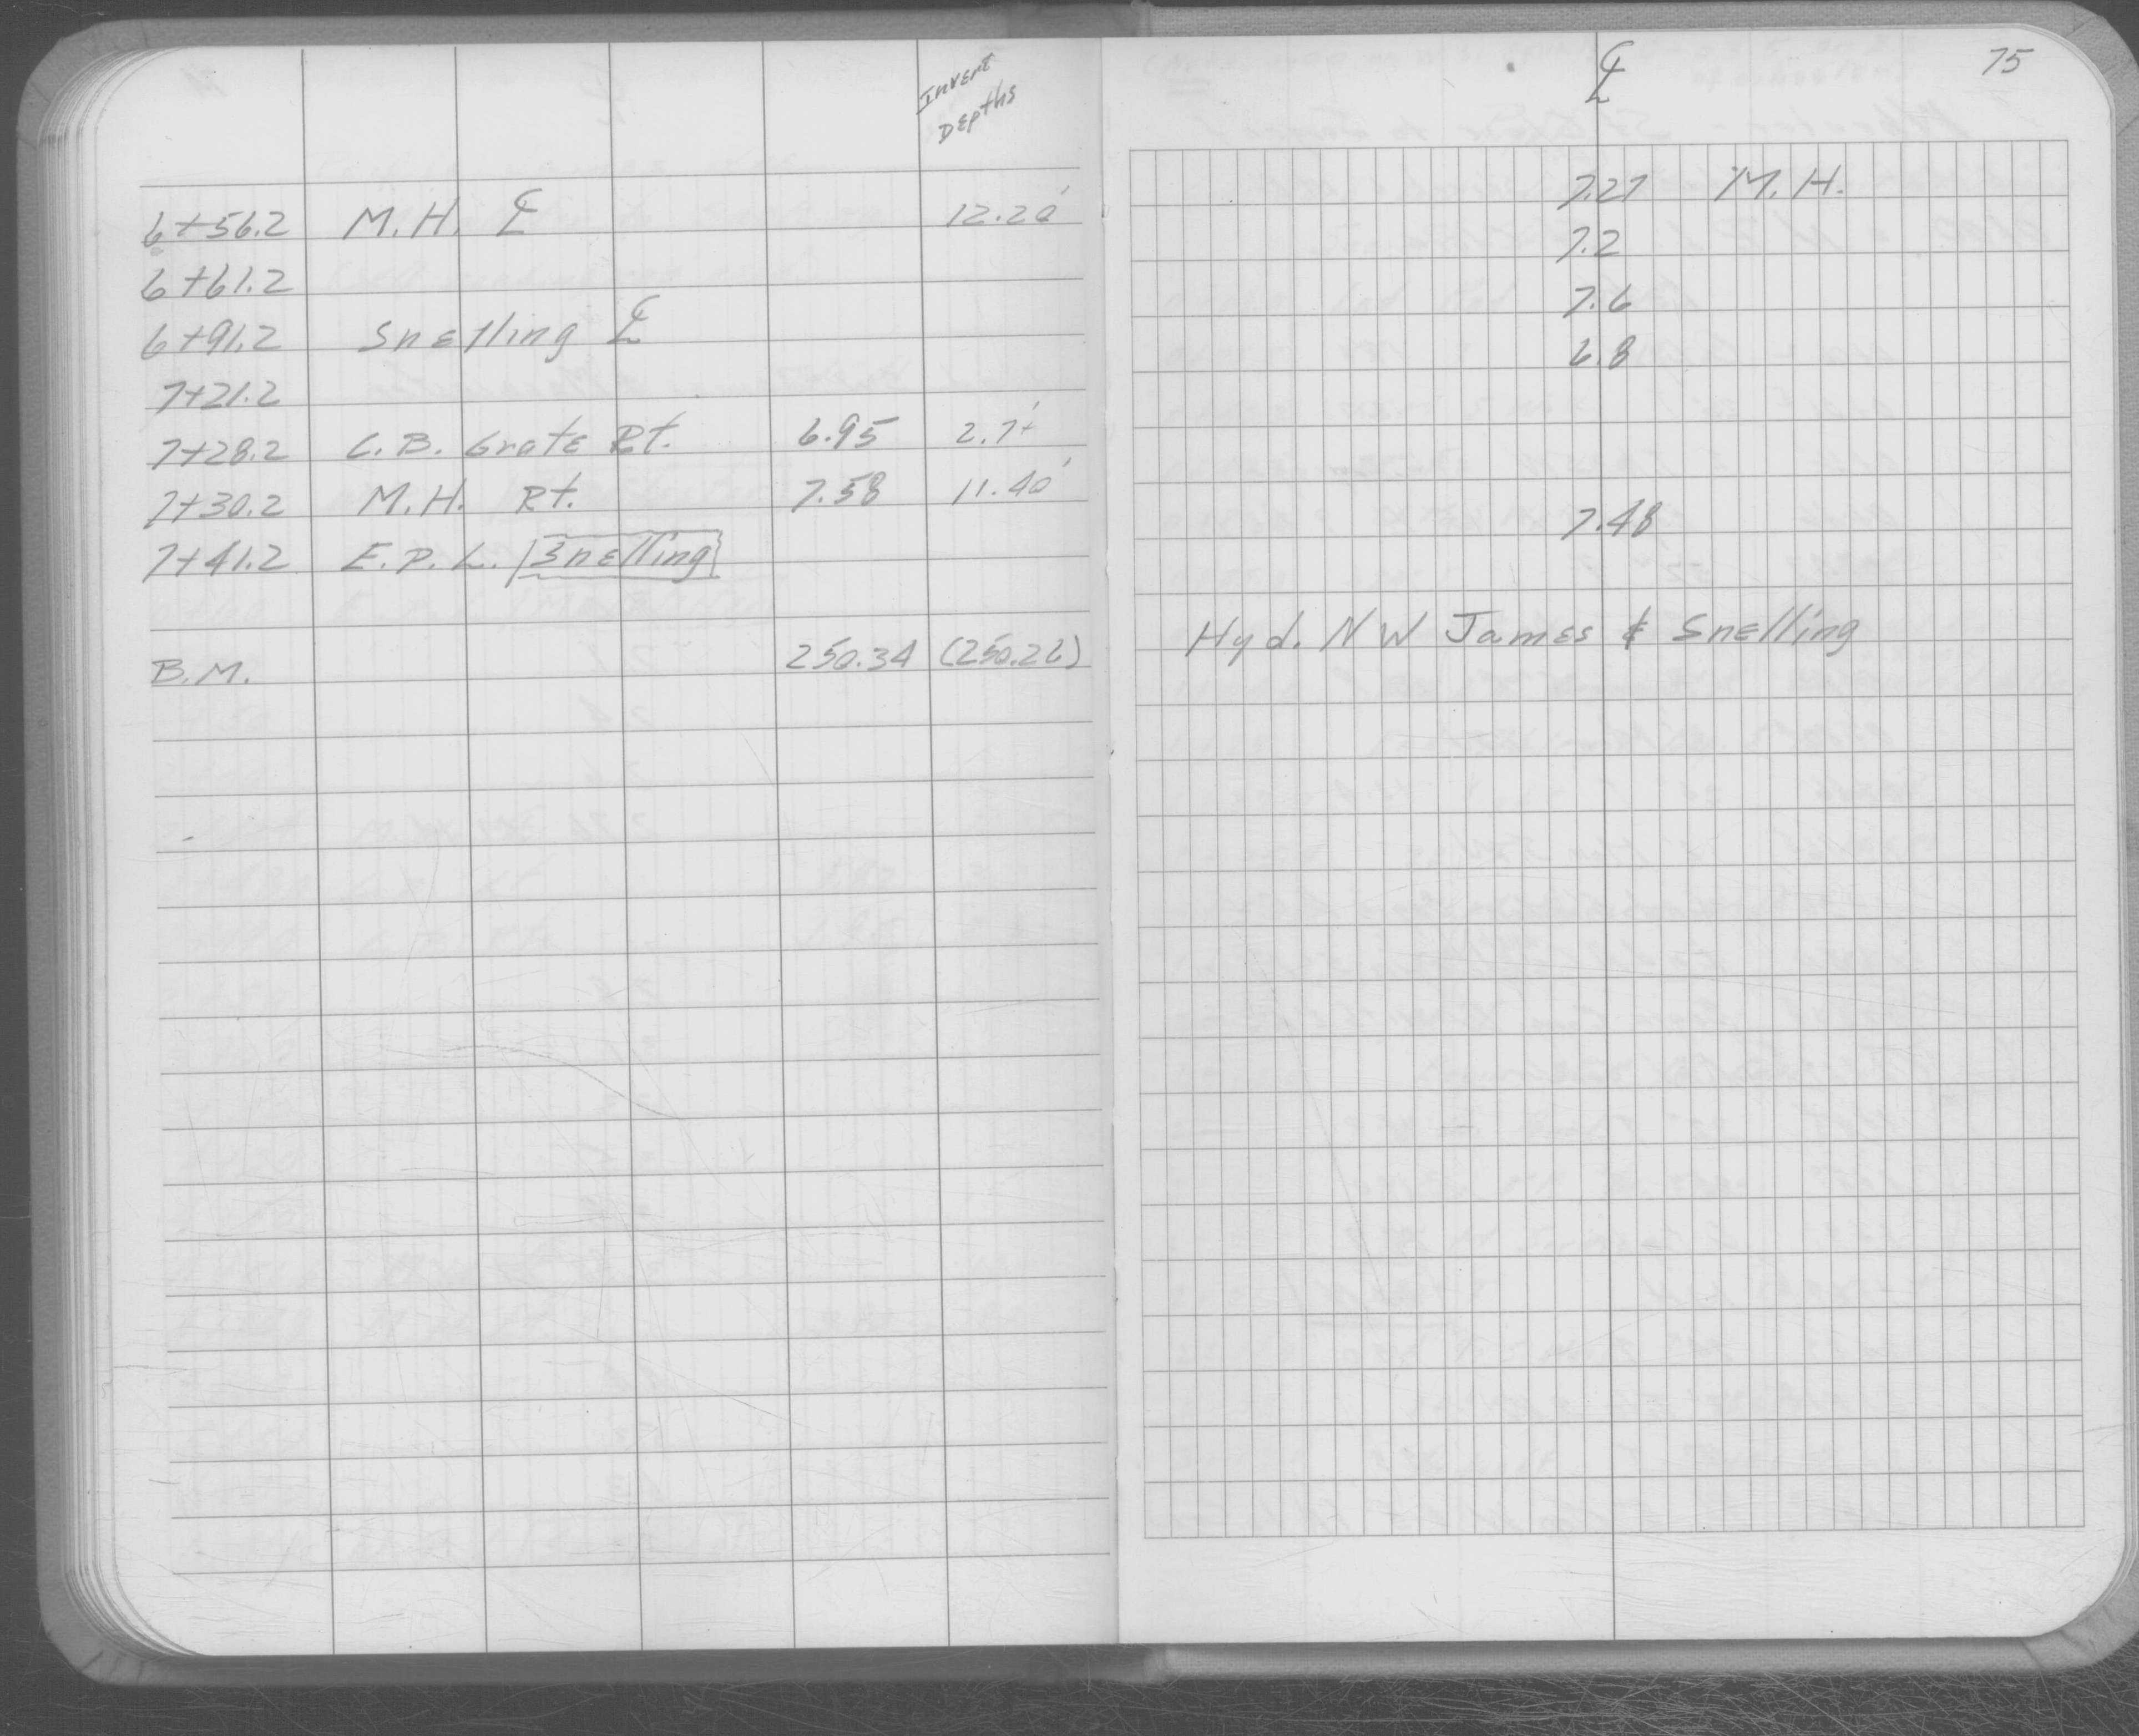 Invert
Depths
6+56.2 M.H. ℄ 12.20'
6+61.2
6+91.2 Snelling ℄
7+21.2
7+28.2 C.B. Grate Rt. 6.95 2.7+'
7+30.2 M.H. Rt. 7.58 11.40'
7+41.2 E.P.L. Snelling
B.M. 250.34 (250.26)
℄ 75
7.27 M.H.
7.2
7.6
6.8
7.48
Hyd. NW James & Snelling